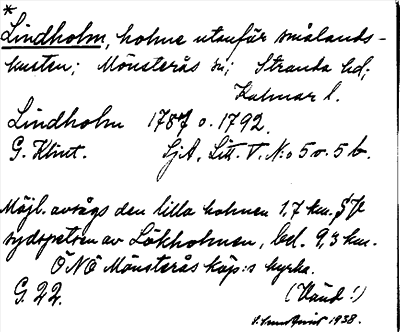 *
Lindholm, holme utanför smålands-
kusten; Mönsterås sn; Stranda hd;
Kalmar l.
Lindholm 1787 o. 1792.
G. Klint. SjA, Litt. V. N:o 5 o. 5 b.
Möjl. avsågs den lilla holmen 1,7 km. SV
sydspetsen av Lökholmen, bel. 9,3 km.
ÖNÖ Mönsterås köp:s kyrka.
G. 22. (Vänd!)
1938.